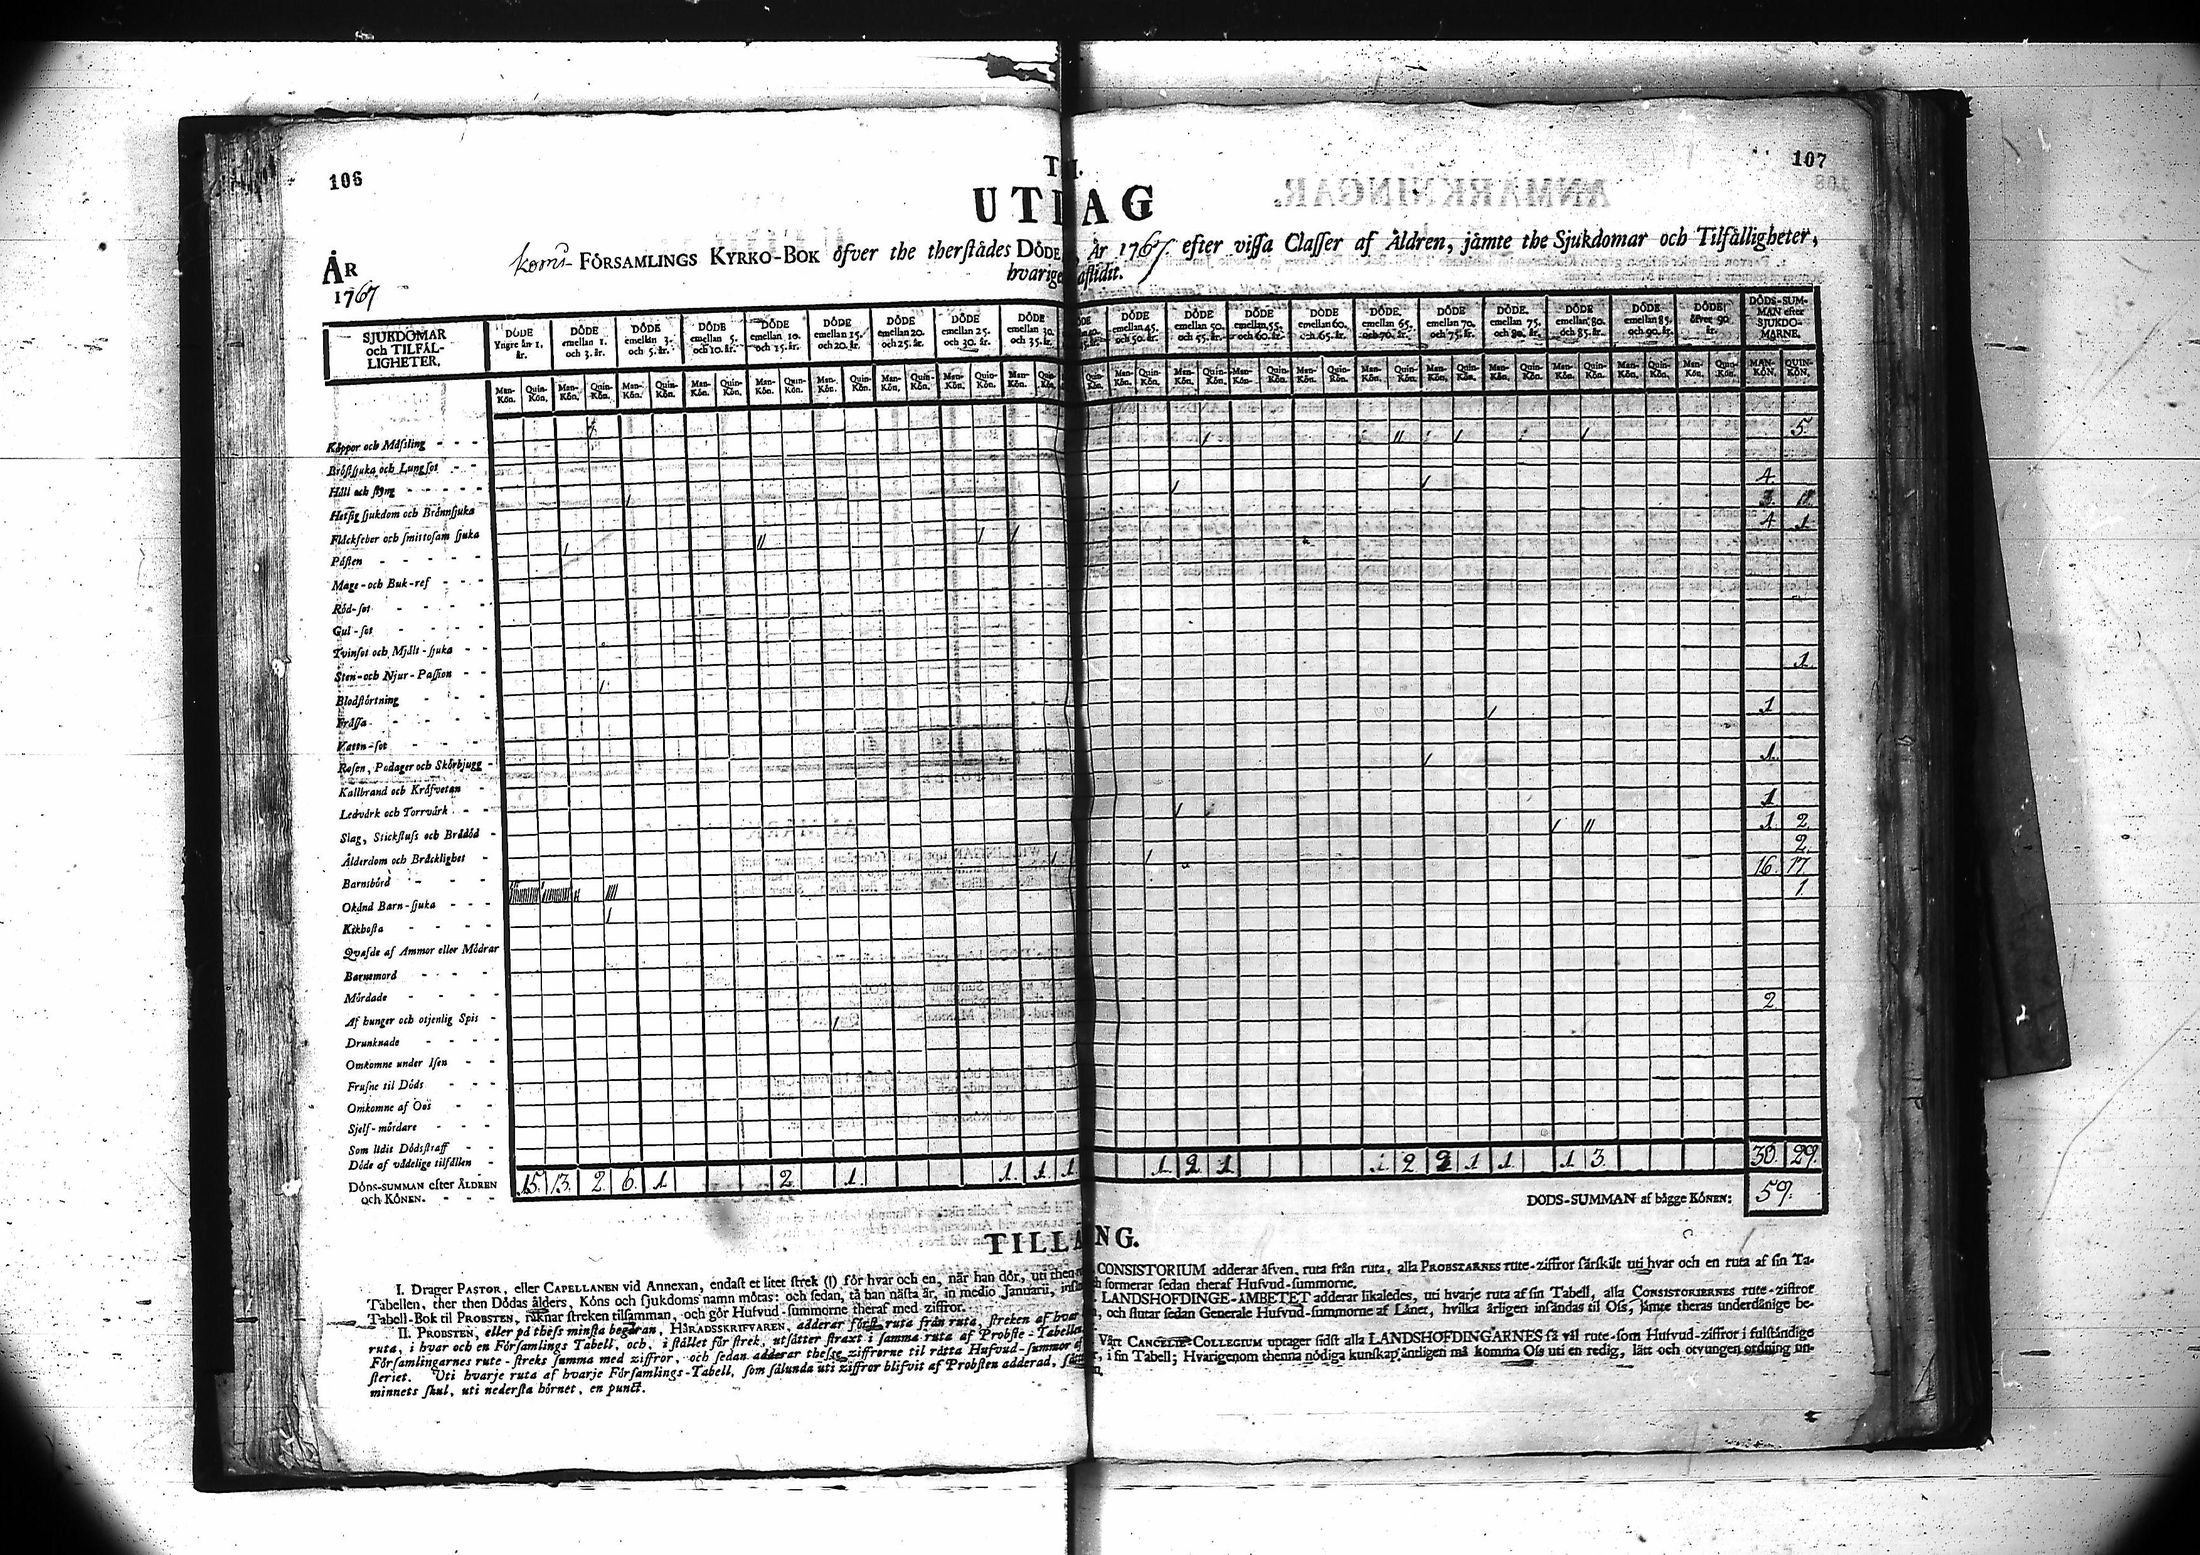 106
107
UTDAG
ÅR
1767
FÖRSAMLINGS KYRKO-BOK öfver the therstådes DÖDE, År 1767. efter vissa Classer af Åldren, jämte the Sjukdomar och Tilfälligheter,
SJUKDOMAR och TILFÄL-LIGHETER.
DÖDE Yngre än 1. år.
DÖDE emellan 1. och 3. år.
DÖDE emellan 3. och 5. år.
DÖDE emellan 5. och 10. år.
DÖDE emellan 10. och 15. år.
DÖDE emellan 15. och 20. år.
DÖDE emellan 20. och 25. år.
DÖDE emellan 25. och 30. år.
DÖDE emellan 30. och 35. år.
DÖDE emellan 45. och 50. år.
DÖDE emellan 50. och 55. år.
DÖDE emellan 55. och 60. år.
DÖDE emellan 60. och 65. år.
DÖDE. emellan 65. och 70. år.
DÖDE emellan 70. och 75. år.
DÖDE. emellan 75. och 80. år.
DÖDE emellan 80. och 85. år.
DÖDE emellan 85. och 90. år.
DÖDE öfver 90 år.
DÖDS-SUM-MAN efter SJUKDO-MARNE.
Man-Kön. Quin-Kön.
Koppor och Mässling - - - 5.
Bröstsjuka och Lungsot - -
Håll och styng - - - - - 4.
Hetsig sjukdom och Brännsjuka
Fläckfeber och smittosam sjuka 4 1
Pästen - - - - -
Mage- och Buk-ref - - -
Röd-sot - - - -
Gul-sot - - - -
Tvinsot och Mjält-sjuka - -
Sten- och Njur-Passion - - 1.
Blodstörtning - - -
Frässa - - - - 1
Vattn-sot - - - -
Rosen, Podager och Skörbjugg - 1.
Kallbrand och Kräfvetan -
Ledvärk och Torrvärk - - 1
Slag, Stickfluss och Brådöd - 1. 2.
Ålderdom och Bräcklighet - 2.
Barnsbörd - - - 16. 17.
Okänd Barn-sjuka - - - 1.
Kikhosta - - - - -
Qvafde af Ammor eller Mödrar
Barnemord - - - -
Mördade - - - -
Af hunger och otjenlig Spis - 2
Drunknade - - - -
Omkomne under Isen - -
Frusne til Döds - - -
Omkomne af Oos - - -
Sjelf-mördare - - -
Som lidit Dödsstraff - - -
Döde af vådelige tilfällen - 30. 29.
DÖDS-SUMMAN efter ÅLDREN och KÖNEN. - - - 15. 13. 2. 6. 1. 2. 1. 1. 1. 1. 1. 2. 1. 1. 2. 2 1 1. 1. 3.
DÖDS-SUMMAN af bägge KÖNEN: 59.
TILLÄNG.
I. Drager PASTOR, eller CAPELLANEN vid Annexan, endast et litet strek (l) för hvar och en, när han dör, uti then
Tabellen, ther then Dödas ålders, Köns och sjukdoms namn mötas: och sedan, tå han nästa år, in medio Januarii,
Tabell-Bok til PROBSTEN, räknar streken tilsamman, och gör Hufvud-summorne theraf med ziffror.
II. PROBSTEN, eller på thess minsta begäran, HÄRADSSKRIFVAREN, adderar först ruta från ruta, streken af hvar
ruta, i hvar och en Församlings Tabell, och, i stället för strek, utsätter straxt i samma ruta af Probste-Tabella
Församlingarnes rute-streks summa med ziffror, och sedan adderar thesse ziffrorne til rätta Hufvud-summor af
steriet. Uti hvarje ruta af hvarje Församlings-Tabell, som sålunda uti ziffror blifvit af Probsten adderad,
minnets skul, uti nedersta hörnet, en punct.
CONSISTORIUM adderar äfven, ruta från ruta, alla PROBSTARNES rute-ziffror särskilt uti hvar och en ruta af sin Ta-
formerar sedan theraf Hufvud-summorne.
LANDSHÖFDINGE-ÄMBETET adderar likaledes, uti hvarje ruta af sin Tabell, alla CONSISTORIERNES rute-ziffror
, och slutar sedan Generale Hufvud-summorne af Länet, hvilka årligen insändas til Oss, jämte theras underdånige be-
Vårt CANCELIE-COLLEGIUM uptager sidst alla LANDSHÖFDINGARNES så väl rute-som Hufvud-ziffror i fulständige
, i sin Tabell; Hvarigenom thenna nödiga kunskap äntligen må komma Oss uti en redig, lätt och otvungen ordning un-